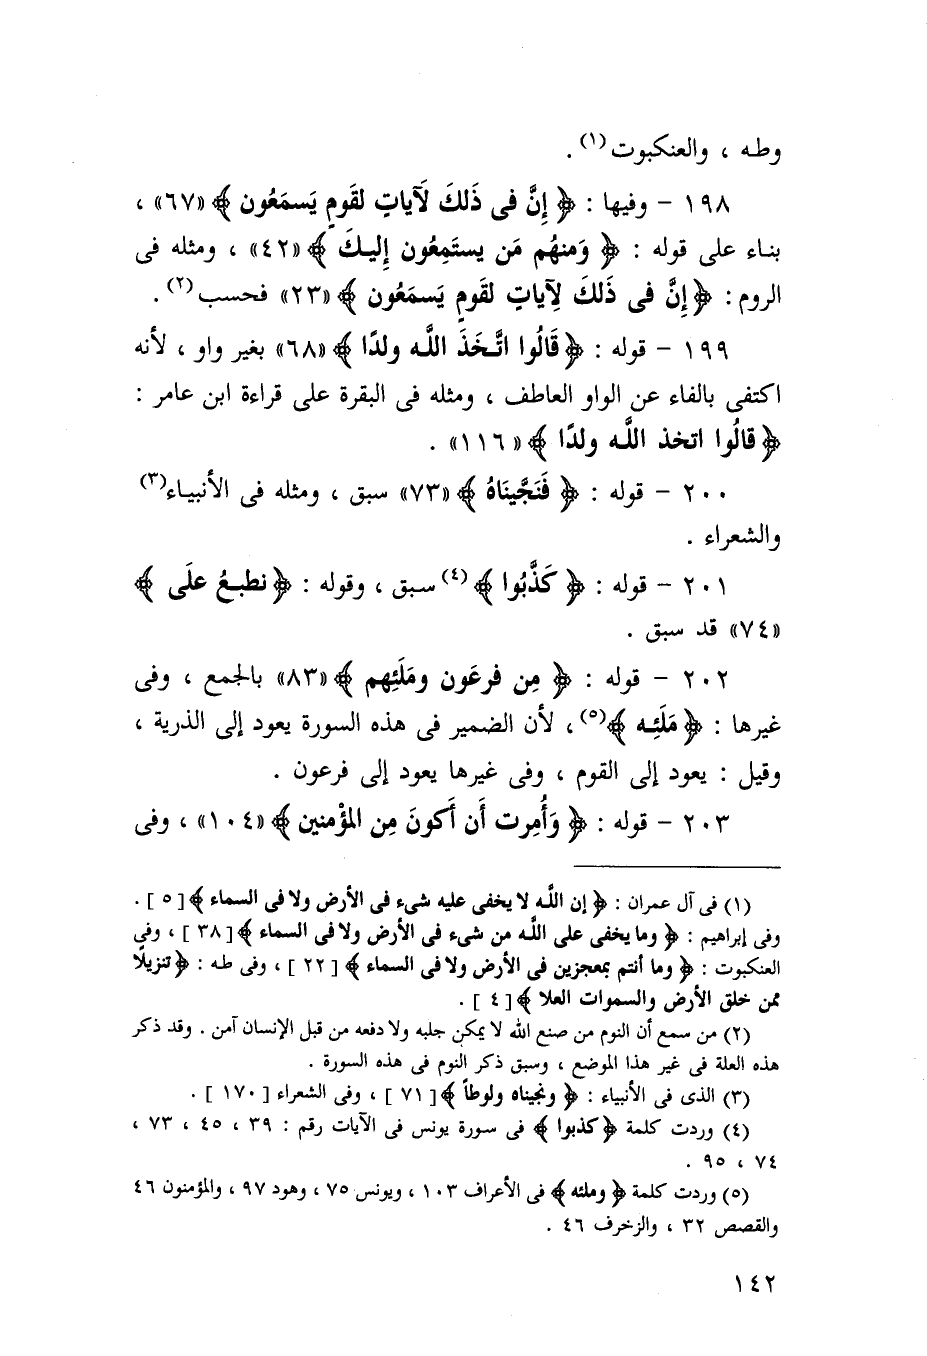 وطه ، والعنكبوت(١) .
١٩٨ – وفيها : ﴿ إِنَّ فى ذَلكَ لَآياتٍ لقَومٍ يَسمَعُون ﴾ «٦٧» ،
بناء على قوله : ﴿ وَمنهُم مَن يستَمِعُون إِليكَ ﴾ «٤٢» ، ومثله فى
الروم : ﴿ إِنَّ فى ذَلكَ لِآياتٍ لقَومٍ يَسمَعُون ﴾ «٢٣» فحسب(٢) .
١٩٩ – قوله : ﴿ قَالُوا اتَّخَذَ اللَّه ولدًا ﴾ «٦٨» بغير واو ، لأنه
اكتفى بالفاء عن الواو العاطف ، ومثله فى البقرة على قراءة ابن عامر :
﴿ قالُوا اتخذ اللَّه ولدًا ﴾ «١١٦» .
٢٠٠ – قوله : ﴿ فَنَجَّينَاهُ ﴾ «٧٣» سبق ، ومثله فى الأنبياء(٣)
والشعراء .
٢٠١ – قوله : ﴿ كَذَّبُوا ﴾(٤) سبق ، وقوله : ﴿ نطبعُ علَى ﴾
«٧٤» قد سبق .
٢٠٢ – قوله : ﴿ مِن فرعَون ومَلَئِهم ﴾ «٨٣» بالجمع ، وفى
غيرها : ﴿ مَلَئِه ﴾(٥) ، لأن الضمير فى هذه السورة يعود إلى الذرية ،
وقيل : يعود إلى القوم ، وفى غيرها يعود إلى فرعون .
٢٠٣ – قوله : ﴿ وَأُمِرت أَن أَكونَ مِن المؤْمنين ﴾ «١٠٤» ، وفى
(١) فى آل عمران : ﴿ إن اللَّه لا يخفى عليه شىء فى الأرض ولا فى السماء ﴾ [ ٥ ] .
وفى إبراهيم : ﴿ وما يخفى على اللَّه من شىء فى الأرض ولا فى السماء ﴾ [ ٣٨ ] ، وفى
العنكبوت : ﴿ وما أنتم بمعجزين فى الأرض ولا فى السماء ﴾ [ ٢٢ ] ، وفى طه : ﴿ تنزيلًا
ممن خلق الأرض والسموات العلا ﴾ [ ٤ ] .
(٢) من سمع أن النوم من صنع الله لا يمكن جلبه ولا دفعه من قبل الإنسان آمن . وقد ذكر
هذه العلة فى غير هذا الموضع ، وسبق ذكر النوم فى هذه السورة .
(٣) الذى فى الأنبياء : ﴿ ونجيناه ولوطاً ﴾ [ ٧١ ] ، وفى الشعراء [ ١٧٠ ] .
(٤) وردت كلمة ﴿ كذبوا ﴾ فى سورة يونس فى الآيات رقم : ٣٩ ، ٤٥ ، ٧٣ ،
٧٤ ، ٩٥ .
(٥) وردت كلمة ﴿ وملئه ﴾ فى الأعراف ١٠٣ ، ويونس ٧٥ ، وهود ٩٧ ، والمؤمنون ٤٦
والقصص ٣٢ ، والزخرف ٤٦ .
١٤٢